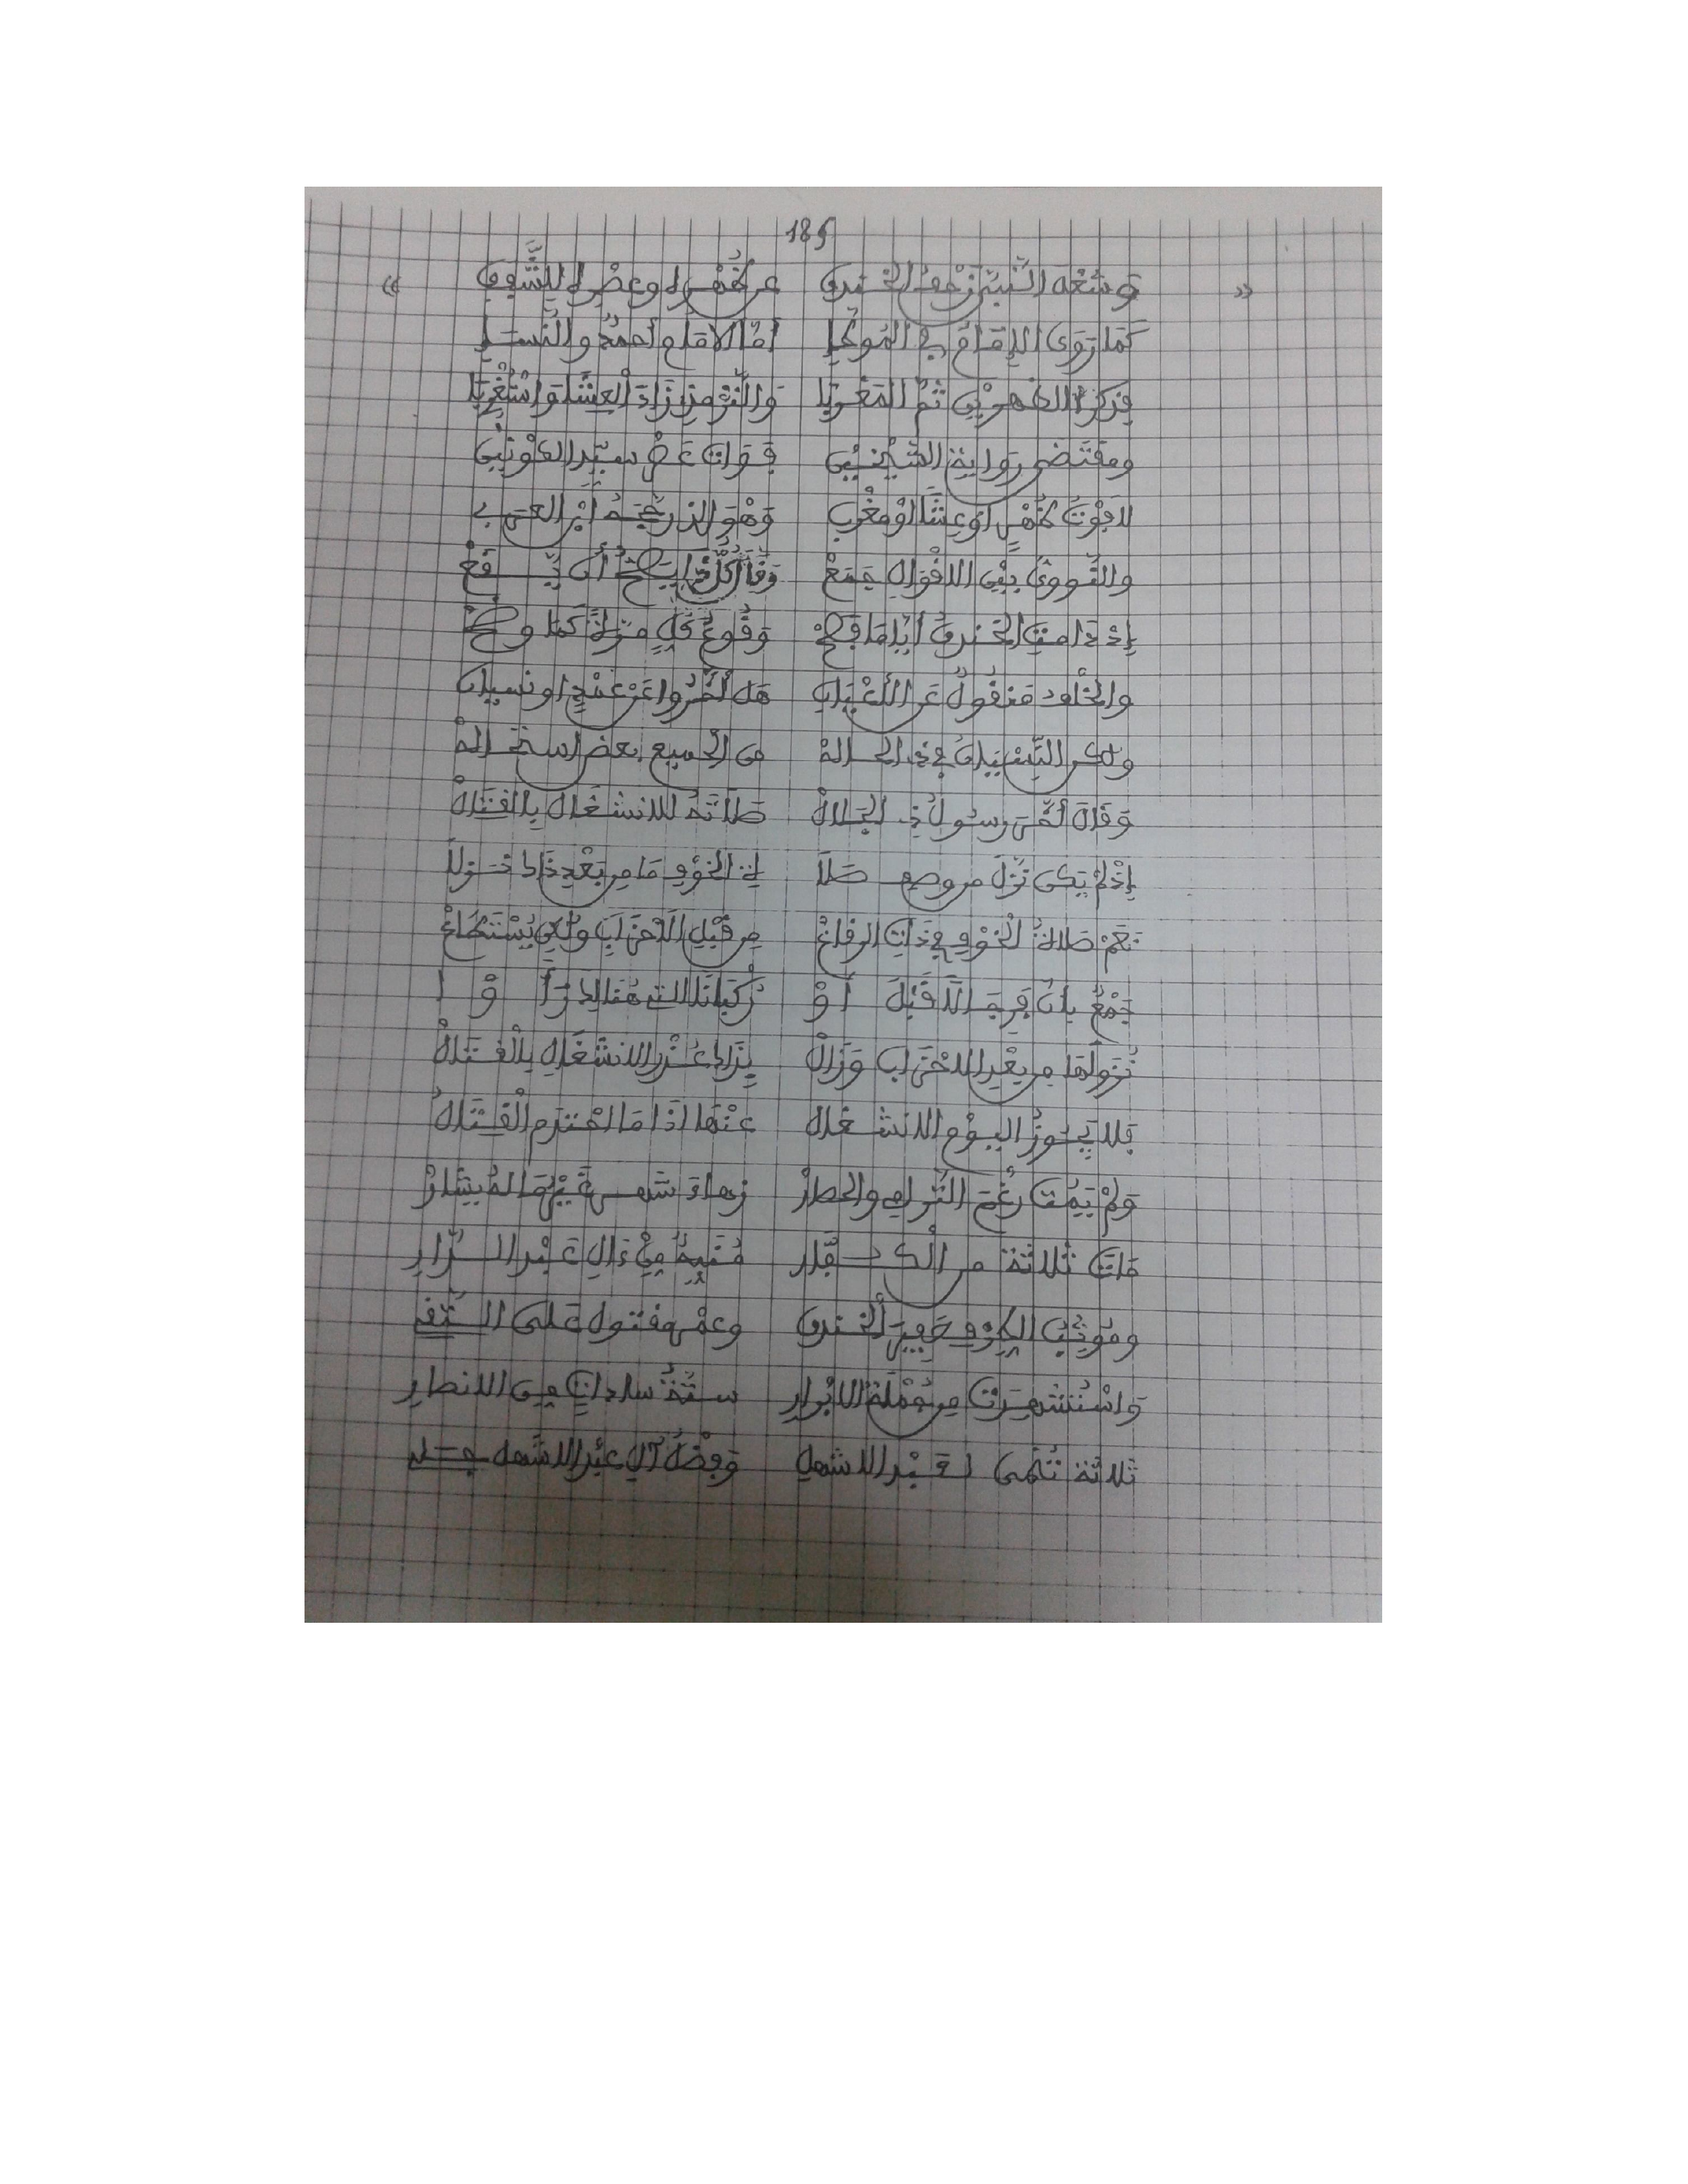 189
وشغل النبي زحف الخندق عن ظهر او عصر له للشفق
كما روى الإمام في الموطا أما الامام أحمد والنسا
فذكرا الظهرين ثم المغربا والترمذي زاد العشا واستغربا
ومقتضى رواية الشيخين فوات عصر سيد الكونين
لا فوت ظهر او عشا او مغرب وهو الذي رجحه ابن العربي
والنووي بين الاقوال جمع وقال كل ذا يصح أن يقع
إذ دامت الخندق أياما فصح وقوع كل مرة كما وضح
والخلف منقول عن الأعيان هل أخروا عن عمد او نسيان
ولكن النسيان في ذي الحاله من الجميع بعض استحاله
وقال أخر رسول ذي الجلال صلاته للانشغال بالقتال
إذ لم يكن نزل من وصف صلا ة الخوف ما من بعد ذاك نزلا
نعم صلاة الخوف في ذات الرقاع من قبل الاحزاب ولكن يستطاع
جمع بان فرجالا قبل أو ركبانا التي هنالك رأوا
نزولها من بعد الاحزاب وزال بذاك عذر الانشغال بالقتال
فلا يجوز اليوم الانشغال عنها اذا ما احتدم القتال
ولم يمت رغم الترامي والحصار زهاء شهر غير ما له يشار
مات ثلاثة من الكفار منبه من ءال عبد الدار
وموثب الطرف حفير الخندق وعمرو مقتول علي التقي
واستشهدت من جملة الابرار ستة سادات من الانصار
ثلاثة تنمى لعبد الاشهل وفضل آل عبد الاشهل جلي